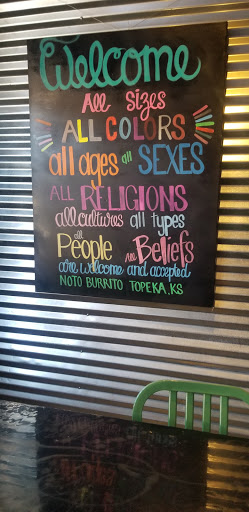 Welcome
All sizes
ALL COLORS
all ages all SEXES
ALL RELIGIONS
all cultures all types
all People all Beliefs
are welcome and accepted
NOTO BURRITO TOPEKA, KS